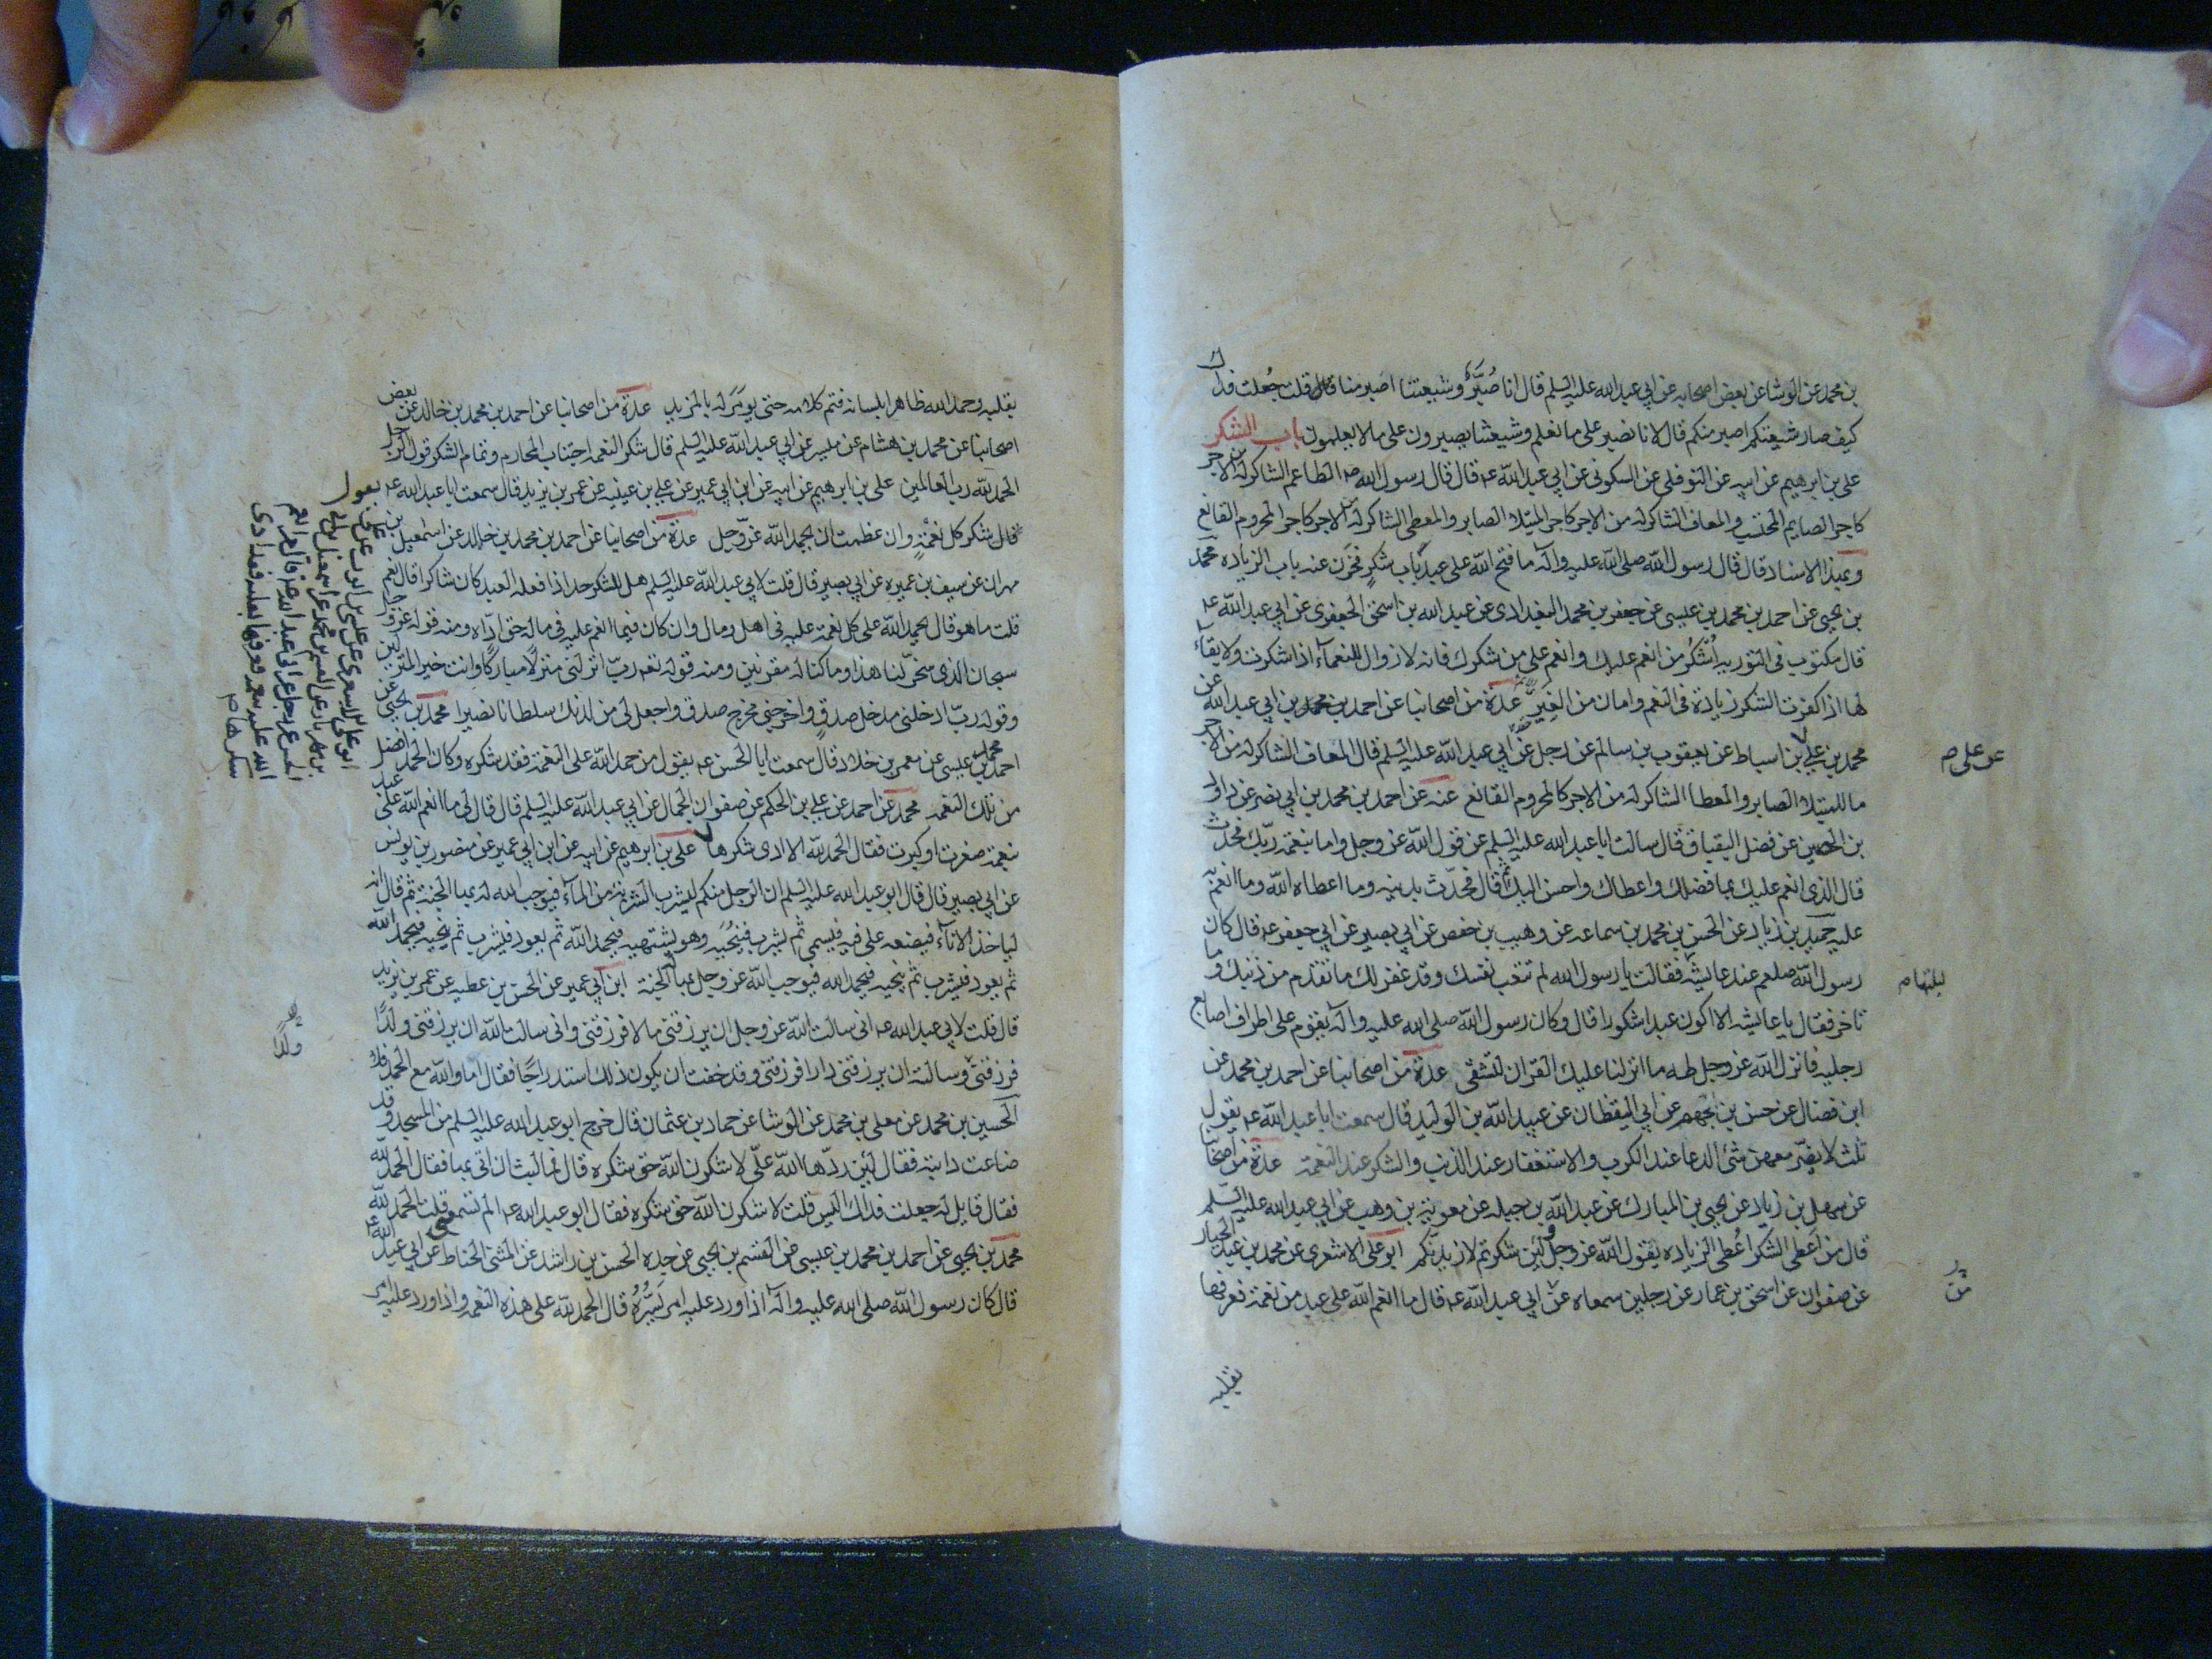 بن محمد عن الوشا عن بعض اصحابه عن ابي عبد الله عليه السلم قال انا صُبَّرٌ وشيعتنا اصبر منا قال قلت جُعلت فداك
كيف صار شيعتكم اصبر منكم قال لانا نصبر على ما نعلم وشيعتنا يصبرون على ما لا يعلمون باب الشكر
علي بن ابرهيم عن ابيه عن النوفلي عن السكوني عن ابي عبد الله عه قال قال رسول الله صه الطاعم الشاكر له من الاجر
كاجر الصايم المحتسب والمعافى الشاكر له من الاجر كاجر المبتلا الصابر والمعطى الشاكر له من الاجر كاجر المحروم القانع
وبهذا الاسناد قال قال رسول الله صلى الله عليه وآله ما فتح الله على عبد باب شكرٍ فخزن عنه باب الزياده محمد
بن يحيى عن احمد بن محمد بن عيسى عن جعفر بن محمد البغدادى عن عبد الله بن اسحق الجعفري عن ابي عبد الله عه
قال مكتوب في التوريه اُشكُر من انعم عليك وانعم على من شكرك فانه لا زوال للنعمآء اذا شكرت ولا بقآء
لها اذا كفرت الشكر زيادة في النعم وامان من الغِيَر عدة من اصحابنا عن احمد بن محمد بن ابي عبد الله عن
محمد بن علي بن اسباط عن يعقوب بن سالم عن رجل عن ابي عبد الله عليه السلم قال المعافى الشاكر له من الاجر
عن على ص
ما للمبتلا الصابر والمعطا الشاكر له من الاجر كالمحروم القانع عنه عن احمد بن محمد بن ابي نصر عن داود
بن الحصين عن فضل البقباق قال سالت ابا عبد الله عليه السلم عن قول الله عز وجل واما بنعمة ربّك فحدّث
قال الذي انعم عليك بما فضلك واعطاك واحسن اليك ثم قال فحدّث بدينه وما اعطاه الله وما انعم به
عليه حميد بن زياد عن الحسن بن محمد بن سماعه عن وهيب بن حفص عن ابي بصير عن ابي جعفر عه قال كان
رسول الله صلعم عند عايشه فقالت يا رسول الله لم تتعب نفسك وقد غفر لك ما تقدم من ذنبك وما
ليلتها ص
تاخر فقال يا عايشه الا اكون عبدا شكورا قال وكان رسول الله صلى الله عليه وآله يقوم على اطراف اصابع
رجليه فانزل الله عز وجل طه ما انزلنا عليك القران لتشقى عدة من اصحابنا عن احمد بن محمد عن
ابن فضال عن حسن بن الجهم عن ابي اليقظان عن عبيد الله بن الوليد قال سمعت ابا عبد الله عه يقول
ثلث لا يضرّ معهن شئ الدعا عند الكرب والاستغفار عند الذنب والشكر عند النعمة عدة من اصحابنا
عن سهل بن زياد عن يحيى بن المبارك عن عبد الله بن جبله عن معوية بن وهب عن ابي عبد الله عليه السلم
قال من اُعطى الشكر اُعطى الزياده يقول الله عز وجل لئن شكرتم لازيدنّكم ابو على الاشعرى عن محمد بن عبد الجبار
عن صفوان عن اسحق بن عمار عن رجلين سمعاه عن ابي عبد الله عه قال ما انعم الله على عبد من نعمة فعرفها
بقلبه
بقلبه وحمد الله ظاهرا بلسانه فتم كلامه حتى يؤمَر له بالمزيد عدة من اصحابنا عن احمد بن محمد بن خالد عن بعض
اصحابنا عن محمد بن هشام عن ميسر عن ابي عبد الله عليه السلم قال شكر النعمه اجتناب المحارم وتمام الشكر قول الرجل
الحمد لله رب العالمين علي بن ابرهيم عن ابيه عن ابن ابي عمير عن علي بن عيينه عن عمر بن يزيد قال سمعت ابا عبد الله عه يقول
قال شكر كل نعمةٍ وان عظمت ان يحمد الله عزّ وجل عدة من اصحابنا عن احمد بن محمد بن خالد عن اسمعيل بن
مهران عن سيف بن عميره عن ابي بصير قال قلت لابي عبد الله عليه السلم هل للشكر حد اذا فعله العبد كان شاكرا قال نعم
قلت ما هو قال يحمد الله على كل نعمة عليه في اهل ومال وان كان فيما انعم عليه في ماله حق ادّاه ومنه قوله عز وجل
سبحان الذي سخّر لنا هذا وما كنا له مقرنين ومنه قوله تعه ربّ انزلني منزلًا مباركًا وانت خير المنزلين
وقوله ربّ ادخلني مدخل صدقٍ واخرجني مخرج صدق واجعل لى من لدنك سلطانا نصيرا محمد بن يحيى عن
احمد بن محمد بن عيسى عن معمر بن خلاد قال سمعت ابا الحسن عه يقول من حمد الله على النعمة فقد شكره وكان الحمد افضل
من تلك النعمه محمد عن احمد عن علي بن الحكم عن صفوان الجمال عن ابي عبد الله عليه السلم قال قال لي ما انعم الله على عبد
بنعمة صغرت او كبرت فقال الحمد لله الا ادى شكرها علي بن ابرهيم عن ابيه عن ابن ابي عمير عن منصور بن يونس
عن ابي بصير قال قال ابو عبد الله عليه السلم ان الرجل منكم ليشرب الشربة من المآء فيوجب الله له بها الجنة ثم قال انه
لياخذ الانآء فيضعه على فيه فيسمى ثم يشرب فينحّيه وهو يشتهيه فيحمد الله ثم يعود فيشرب ثم ينحيه فيحمد الله
ثم يعود فيشرب ثم ينحيه فيحمد الله فيوجب الله عز وجل بها له الجنة ابن ابي عمير عن الحسن بن عطيه عن عمر بن يزيد
قال قلت لابي عبد الله عه انى سالت الله عز وجل ان يرزقنى مالا فرزقنى وانى سالت الله ان يرزقنى ولدًا
ولدًا
فرزقنى وسالته ان يرزقنى دارا فرزقنى وقد خفت ان يكون ذلك استدراجًا فقال اما والله مع الحمد فلا
الحسين بن محمد عن معلى بن محمد عن الوشا عن حماد بن عثمان قال خرج ابو عبد الله عليه السلم من المسجد وقد
ضاعت دابته فقال لئِن ردّها الله علّى لاشكرن الله حق شكره قال فما لبث ان اتى بها فقال الحمد لله
فقال قايل له جعلت فداك اليس قلت لاشكرن الله حق شكره فقال ابو عبد الله عه الم تسمعنى قلت الحمد لله
محمد بن يحيى عن احمد بن محمد بن عيسى عن القسم بن يحيى عن جده الحسن بن راشد عن المثنى الحناط عن ابي عبد الله عه
قال كان رسول الله صلى الله عليه وآله اذا ورد عليه امر يَسُرُّهُ قال الحمد لله على هذه النعمه واذا ورد عليه امر